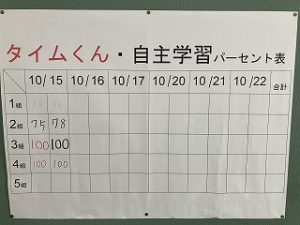 タイムくん・自主学習パーセント表
10/15 10/16 10/17 10/20 10/21 10/22 合計
1組
2組 75 78
3組 100 100
4組 100 100
5組